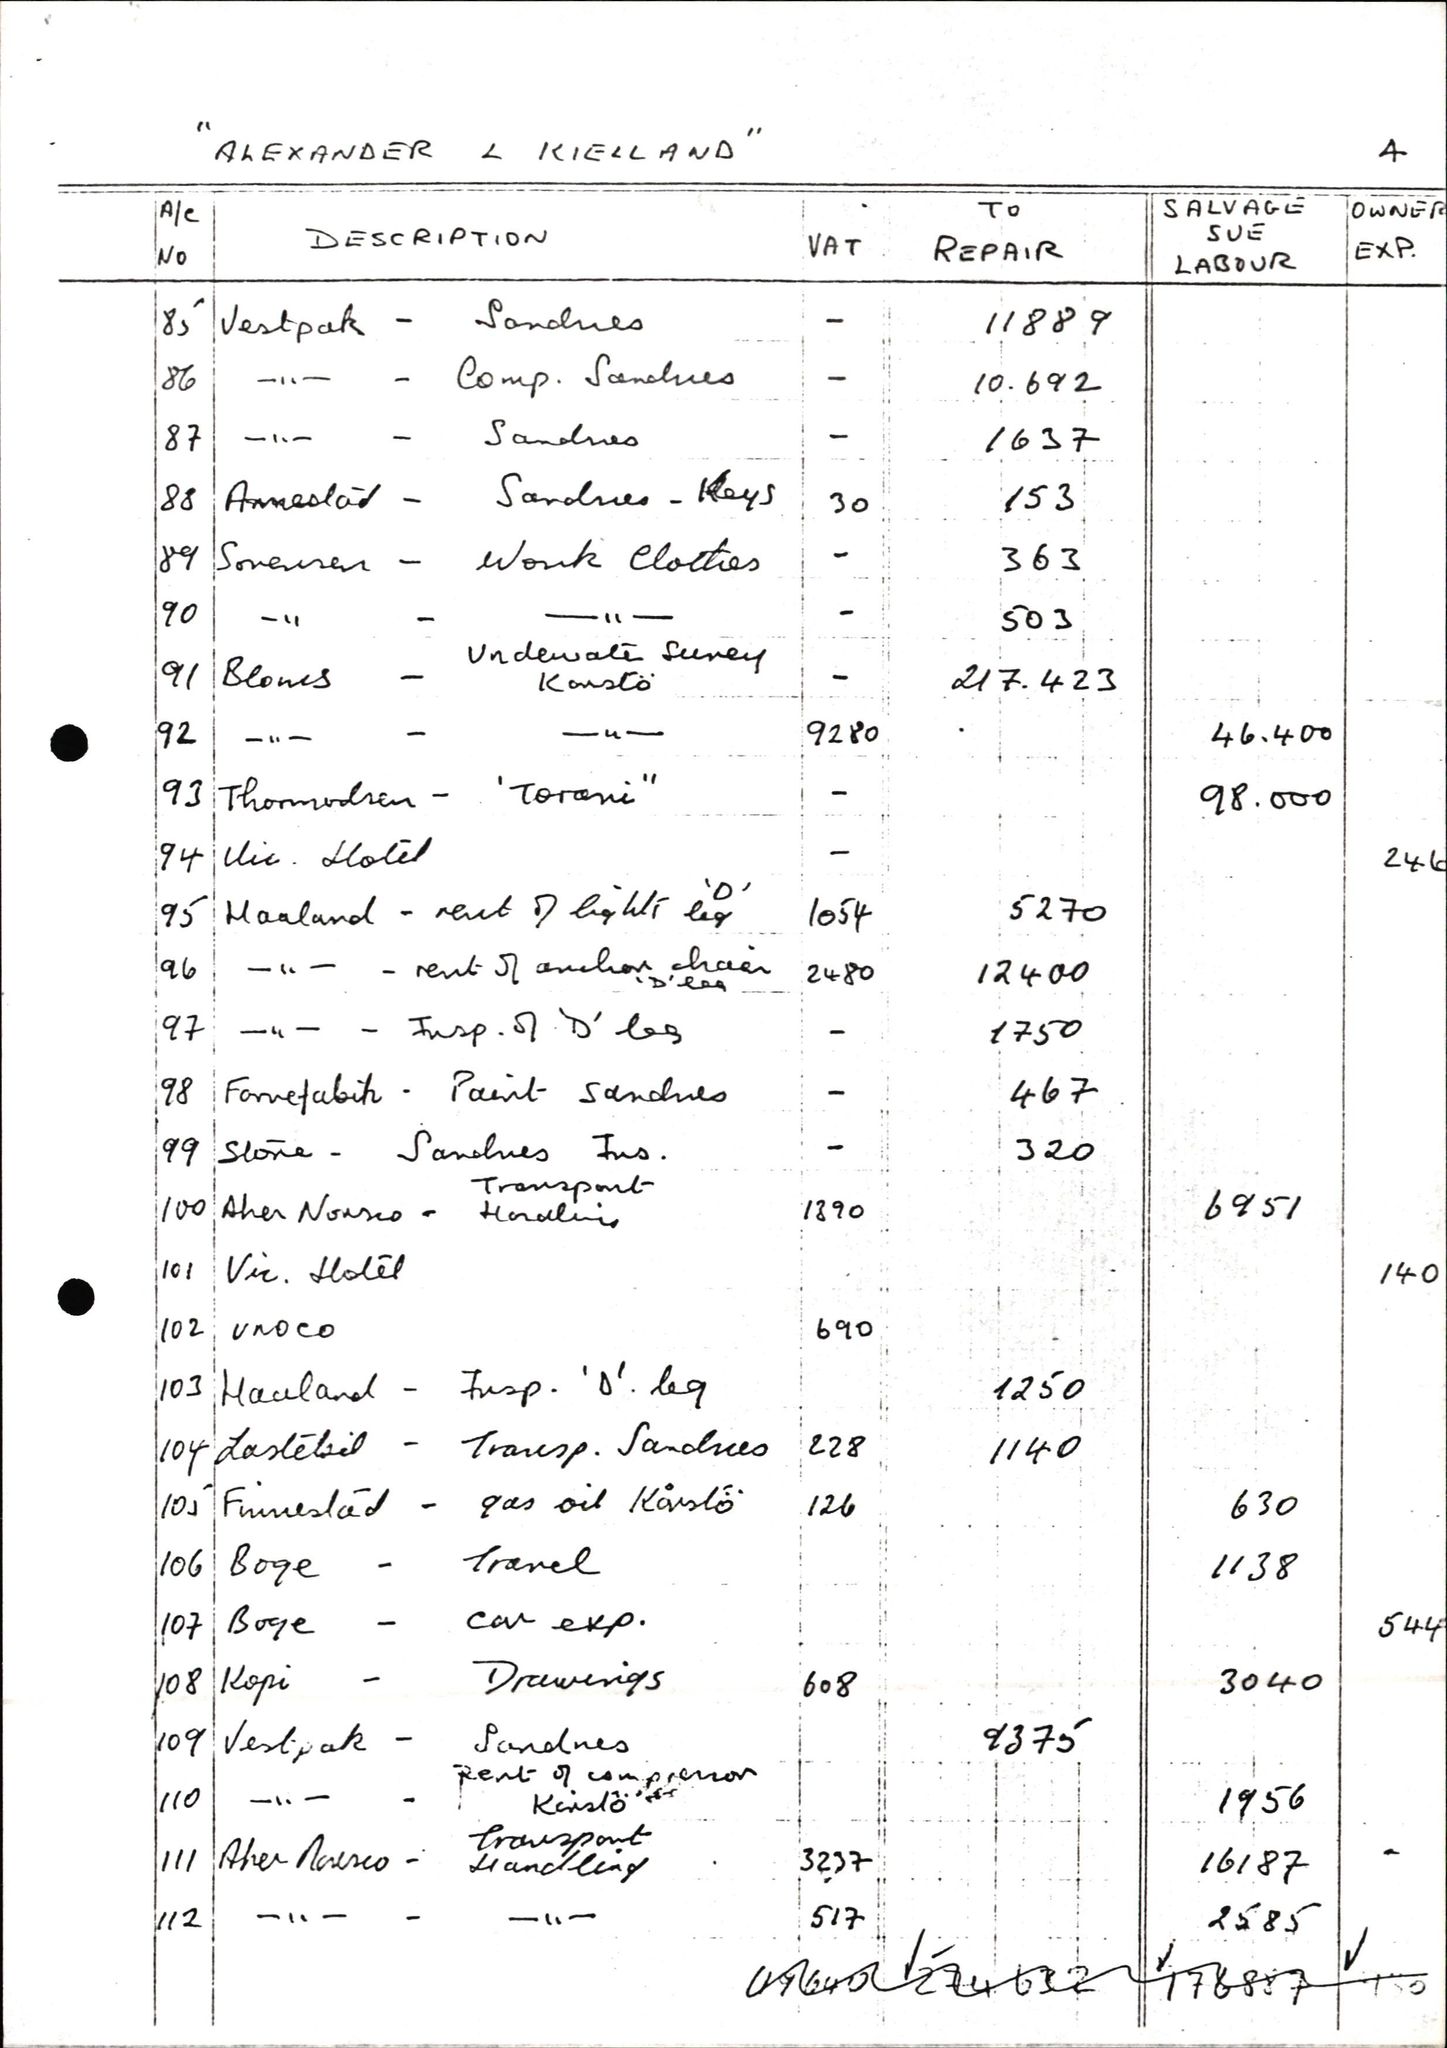 "ALEXANDER L KIELLAND" 4
A/c No DESCRIPTION VAT TO REPAIR SALVAGE SUE LABOUR OWNER EXP.
85 Vestpak - Sandnes - 11889
86 -"- - Comp. Sandnes - 10.692
87 -"- - Sandnes - 1637
88 Annestad - Sandnes - Keys 30 153
89 Sorensen - Work Clothes - 363
90 -" - -"- - 503
91 Bloms - Underwater Survey Karstö - 217.423
92 -"- - -"- 9280 46.400
93 Thormodsen - 'Torani" - 98.000
94 Vic. Hotel - 246
95 Haaland - rent of lights 'D' leg 1054 5270
96 -"- - rent of anchor chain 'D' leg 2480 12400
97 -"- - Insp. of 'D' leg - 1750
98 Farvefabrik - Paint Sandnes - 467
99 - Sandnes Ins. - 320
100 Aker Norsco - Transport Handling 1390 6951
101 Vic. Hotel 140
102 UNOCO 690
103 Haaland - Insp. 'D'. leg 1250
104 Lastebil - Transp. Sandnes 228 1140
105 Finnestad - gas oil Kårstö 126 630
106 Boge - Travel 1138
107 Boge - car exp. 544
108 Kopi - Drawings 608 3040
109 Vestpak - Sandnes 9375
110 -"- - Rent of compressor Kårstö 1956
111 Aker Norsco - Transport Handling 3237 16187 -
112 -"- - -"- 517 2585
274632 176887